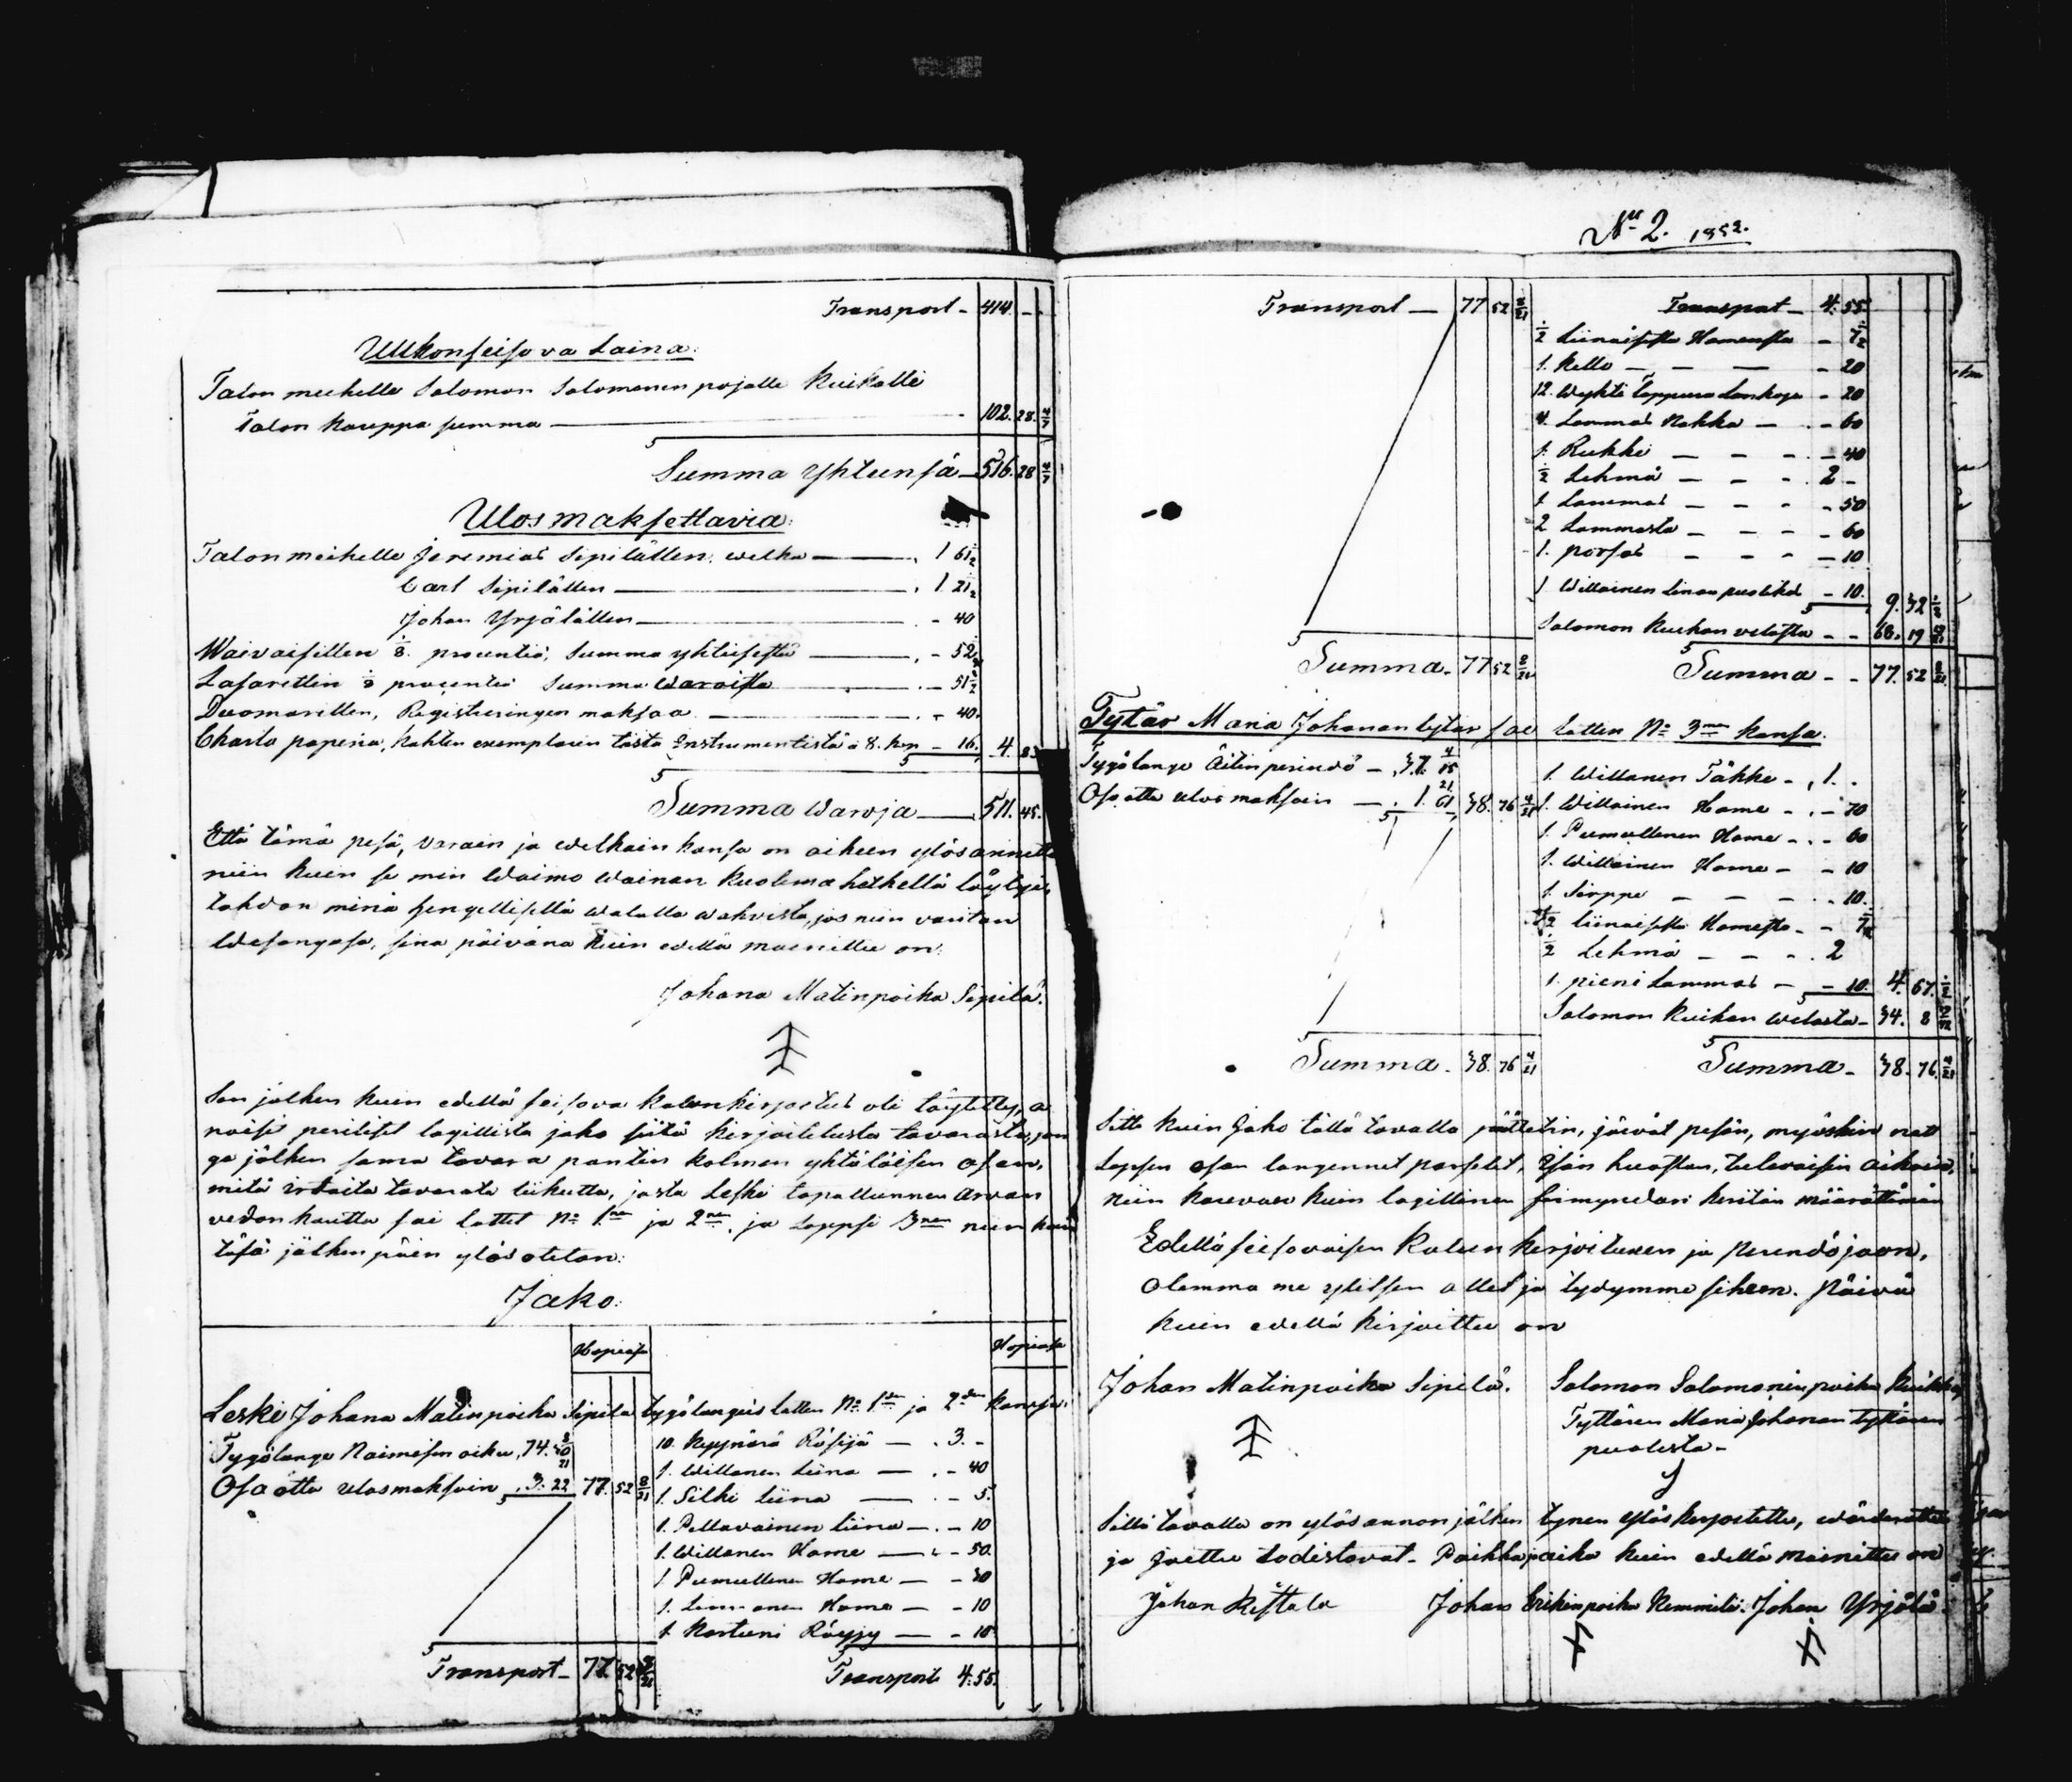 Transport - 414. -
Ulkonseisova Laina:
Talon meehelle Salomon Salomonen pojalle Kuikalle
Talon Kauppa summa — 102. 28 4/7
Summa Yhteensä - 516. 28 4/7
Ulosmaksettavia:
Talon meehelle Jeremias Sipilällen, welka — 1 61 1/2
Carl Sipilällen — 1 21 1/2
Johan Yrjälällen — - 40
Waivaisillen 1/8 procentiä, Summa yhteisestä — - 52
Lasarettin 1/8 procentiä Summa Waroista — - 51 1/2
Duomarillen, Registeeringen maksaa — - 40.
Charta paperia, kahten exemplaren tästä Instrumentistä à 8. kop - 16. 4. 83
Summa Waroja — 511. 45.
Että tämä pesä, varain ja welkain kansa on aiheen ylösannettu
niin kuin se min Waimo Wainan Kuolema hetkellä löytyi,
tahdon minä hengellisellä walalla wahvista, jos niin varitan
Wesangasa, sina päivänä kuin edellä mainittu on:
Johana Matinpoika Sipilä.
Sen jälken kuin edellä seisova kalunkirjoitus oli täytetty, a
noisit perilliset lagillista jako siitä kirjoitetusta tavarasta, jon
ga jälken sama tavara pantin kolmen yhtäläisen osan,
mitä irtaita tavarata liikutta, josta Leski tapallunnen arvan
vedon kautta sai lottit No 1nen ja 2nen, ja Lappsi 3nen niin kuin
täsä jälken päin ylösotetan:
Jako:
Hopiasa Hopiasa
Leski Johana Matinpoika Sipilä tygölangeis Lotten No 1sen ja 2den kansa:
Tygölange Naimisen oikeu, 74. 30 8/21
Osa otta ulosmaksoin 3. 22 77. 52 8/21
10. Kyynärä Räsijä — . 3. -
1. Willanen Liina — . - 40
1. Silki liina — . - 5.
1. Pellavainen liina — . - 10
1. Willanen Hame — - 50
1 Pumullinen Hame — - 30
1. Hame — - 10
1. Kartuni Röyjy — - 10
Transport - 77. 52 8/21 Transport 4. 55.
No 2. 1852.
Transport — 77 52 8/21
Transport - 4. 55
1/2 Liinaisesta Hameesta - 7 1/2
1. Kello — — — - 20
12. Wyhti Tappura Lankaja - 20
4. Lammas Nahka — - 60
1. Rukki — - - - 40
1/2 Lehmä — - - 2 -
1 Lammas — - - - 50
2 Lammasta — - - - 60
1. porsas - - - - 10
1 Willainen Linan puolikas - 10. 9. 32 1/2
Salomon Kuikan velasta - - 68. 19
Summa - 77 52 8/21 Summa - - 77. 52 8/21
Tytär Maria Johanan tytär sai Lotten No 3nen kansa.
Tygölange Äitin perindö - 37. 15 4/21
Osa otta ulos maksoin — 1. 61 - 38. 76 4/21
1. Willanen Täkke - 1. -
1. Willainen Hame - . - 70
1. Pumullinen Hame - . - 60
1. Willainen Hame - - 10
1 Sirppe — - - . - 10.
1/2 liinaisesta Hamesta - - 7 1/2
1/2 Lehmä - - - . 2
1. pieni Lammas — - 10. 4. 67. 1/2
Salomon Kuikan Welasta - 34. 8
Summa - 38. 76 4/21 Summa - 38. 76. 4/21
Sitte kuin Jako tällä tavalla päätetin, jäivät pesän, myöskin nätt
Lapsen osan langennet parselit, Isän huostan, tulevaisiin aikoin,
niin kauvan kuin lagillinen förmyndari heitän määrättämän
Edelläseisovaisen Kalun kirjoituxen ja Perindöjaon,
olemma me ylitsen ollet ja tydymme siheen. Päivä
kuin edellä kirjoittu on
Johan Matinpoika Sipilä. Salomon Salomoninpoika Kuikka
Tyttären Maria Johanan tyttären
puolesta -
Sillä tavalla on ylösannon jälken tynen ylöskirjoitettu, wärderattu
ja Jaettu todistavat. Paikka ja aika kuin edellä mainittu on
Johan Kestala Johan Erikinpoika Kemmilä. Johan Yrjälä